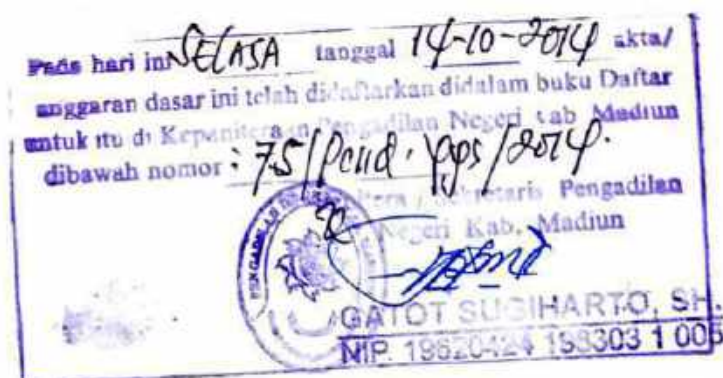 Pada hari ini SELASA tanggal 14-10-2014 akta/
anggaran dasar ini telah didaftarkan didalam buku Daftar
untuk itu di Kepaniteraan Pengadilan Negeri Kab Madiun
dibawah nomor : 75/Pend. /2014.
Panitera / Sekretaris Pengadilan
Negeri Kab. Madiun
GATOT SUGIHARTO, SH.
NIP. 19620424 198303 1 005